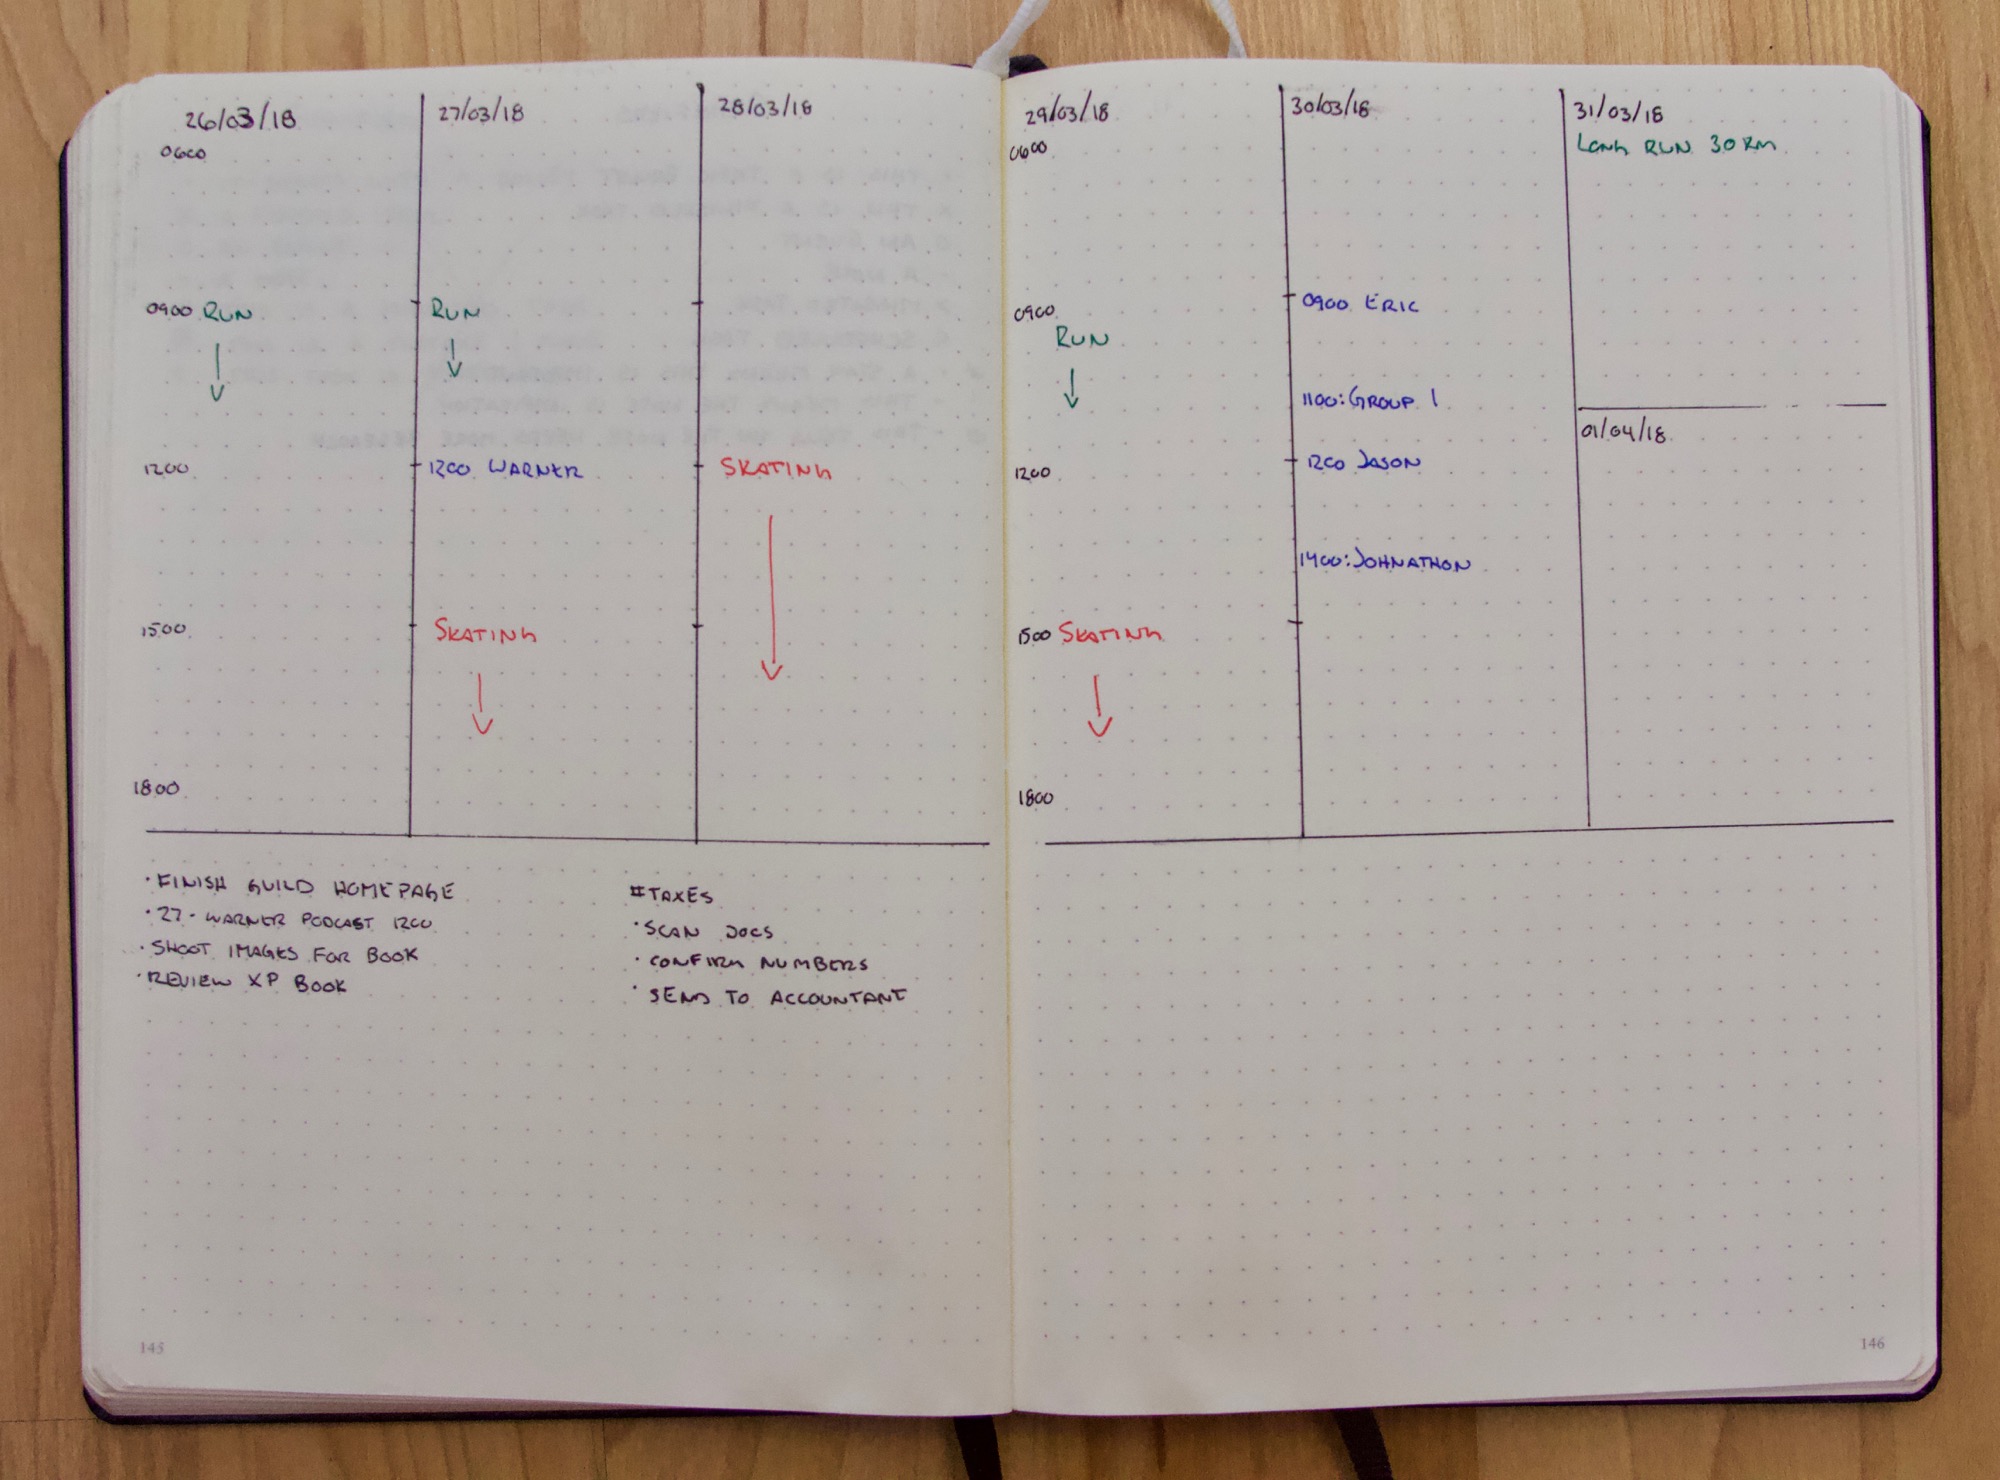 26/03/18
0600
0900 RUN
1200
1500
1800
27/03/18
RUN
1200 WARNER
SKATING
28/03/18
SKATING
· FINISH GUILD HOMEPAGE
· 27 - WARNER PODCAST 1200
· SHOOT IMAGES FOR BOOK
· REVIEW XP BOOK
#TAXES
· SCAN DOCS
· CONFIRM NUMBERS
· SEND TO ACCOUNTANT
145
29/03/18
0600
0900
RUN
1200
1500 SKATING
1800
30/03/18
0900 ERIC
1100: GROUP 1
1200 JASON
1400: JOHNATHON
31/03/18
LONG RUN 30 KM
01/04/18
146